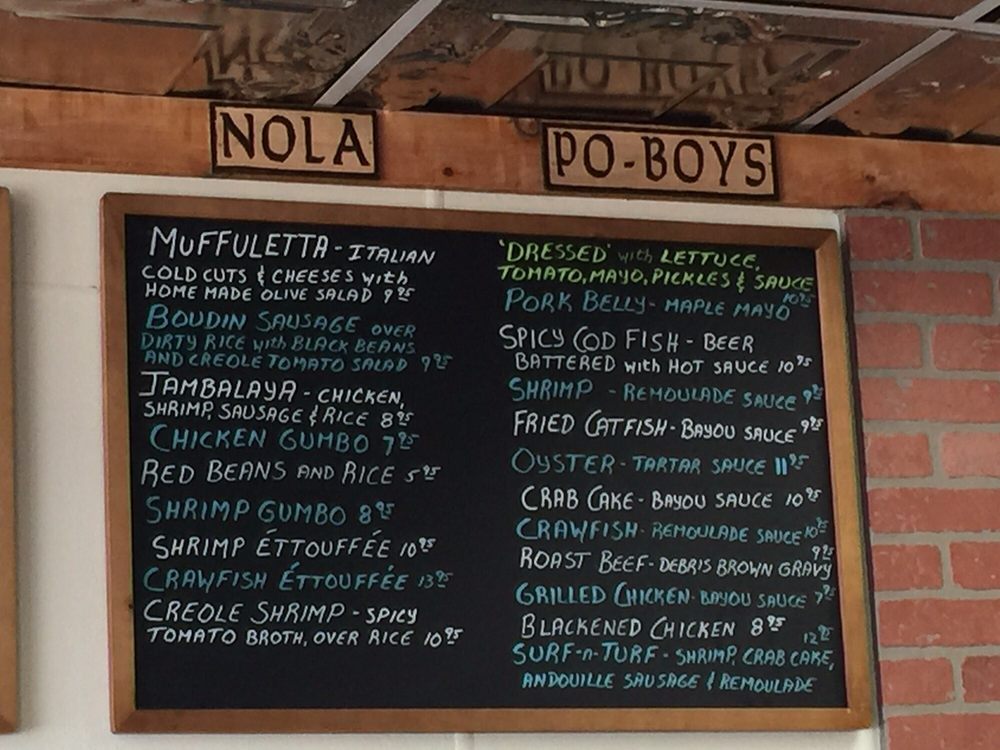 NOLA
MUFFULETTA - ITALIAN
COLD CUTS & CHEESES with
HOME MADE OLIVE SALAD 9 95
BOUDIN SAUSAGE OVER
DIRTY RICE with BLACK BEANS
AND CREOLE TOMATO SALAD 9 95
JAMBALAYA - CHICKEN,
SHRIMP, SAUSAGE & RICE 8 95
CHICKEN GUMBO 7 95
RED BEANS AND RICE 5 95
SHRIMP GUMBO 8 95
SHRIMP ÉTTOUFFÉE 10 95
CRAWFISH ÉTTOUFFÉE 13 95
CREOLE SHRIMP - SPICY
TOMATO BROTH, OVER RICE 10 95
PO-BOYS
'DRESSED' with LETTUCE,
TOMATO, MAYO, PICKLES & SAUCE
PORK BELLY - MAPLE MAYO 10 95
SPICY COD FISH - BEER
BATTERED with HOT SAUCE 10 95
SHRIMP - REMOULADE SAUCE 9 95
FRIED CATFISH - BAYOU SAUCE 9 95
OYSTER - TARTAR SAUCE 11 95
CRAB CAKE - BAYOU SAUCE 10 95
CRAWFISH - REMOULADE SAUCE 10 95
ROAST BEEF - DEBRIS BROWN GRAVY 9 95
GRILLED CHICKEN - BAYOU SAUCE 7 95
BLACKENED CHICKEN 8 95
SURF-n-TURF - SHRIMP, CRAB CAKE, 12 95
ANDOUILLE SAUSAGE & REMOULADE